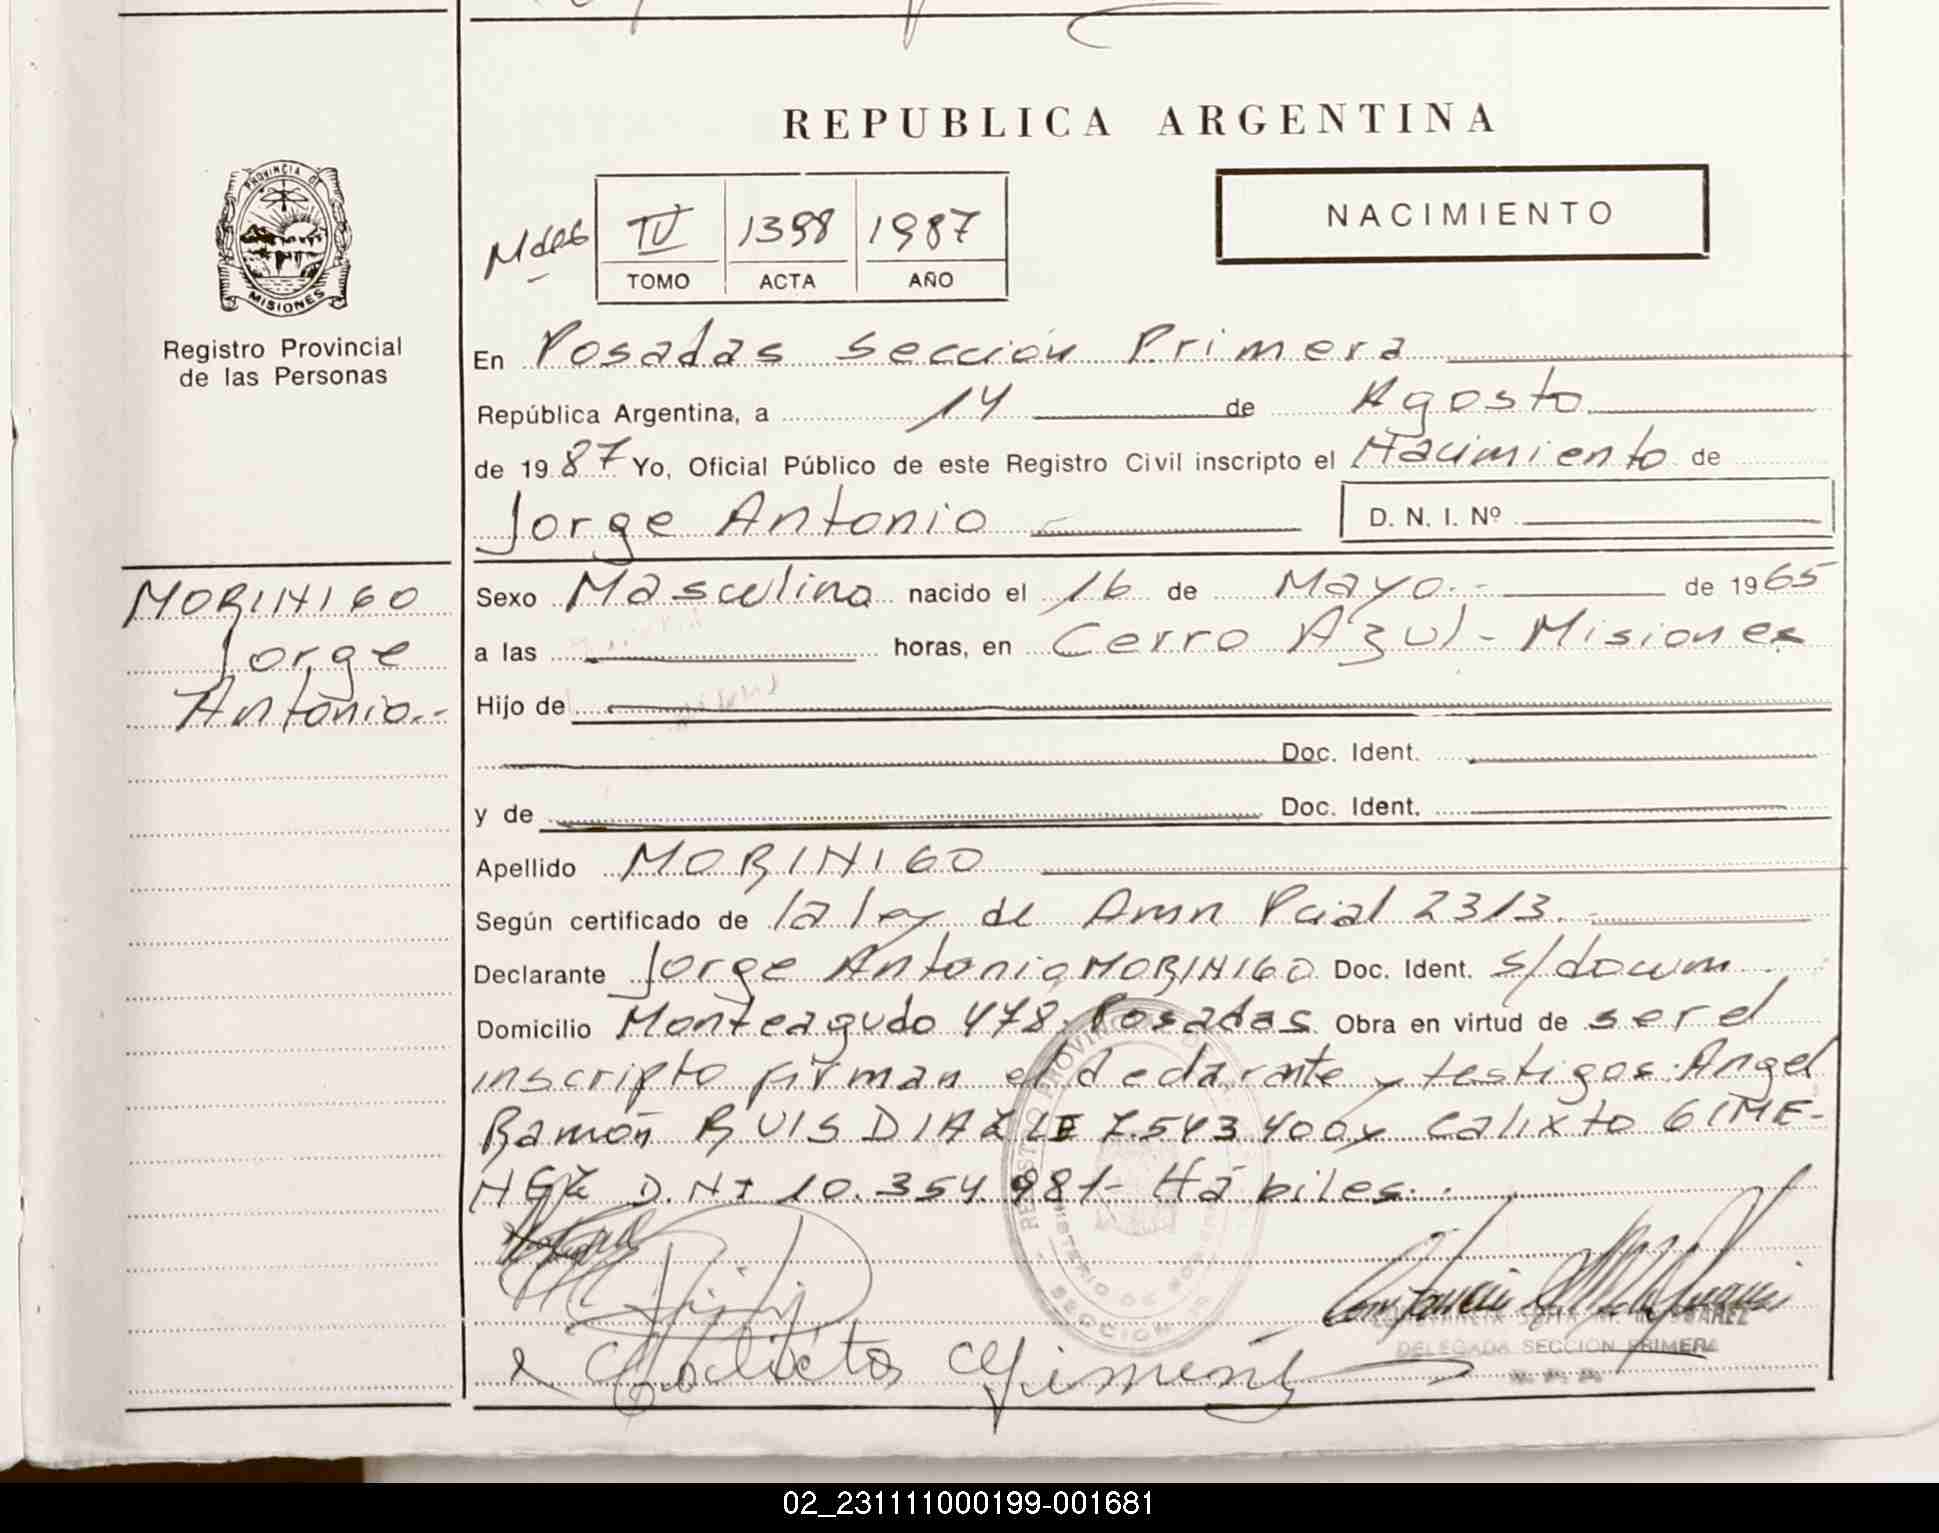 REPUBLICA ARGENTINA
PROVINCIA DE
MISIONES
Registro Provincial
de las Personas
IV 1398 1987
TOMO ACTA AÑO
NACIMIENTO
En Posadas Sección Primera
República Argentina, a 14 de Agosto
de 1987 Yo, Oficial Público de este Registro Civil inscripto el Nacimiento de
Jorge Antonio D. N. I. Nº
MORINIGO
Jorge
Antonio.-
Sexo Masculino nacido el 16 de Mayo.- de 1965
a las horas, en Cerro Azul - Misiones
Hijo de
Doc. Ident.
y de Doc. Ident.
Apellido MORINIGO
Según certificado de la ley de Amn Pcial 2313.
Declarante Jorge Antonio MORINIGO Doc. Ident. s/docum
Domicilio Monteagudo 478. Posadas Obra en virtud de ser el
inscripto firman el declarante y testigos: Angel
Ramón RUIS DIAZ LE 7.543.400 y Calixto GIME-
NEZ D.NI 10.354.981- Hábiles..
Calixto Gimenez
DELEGADA SECCION PRIMERA
02_231111000199-001681